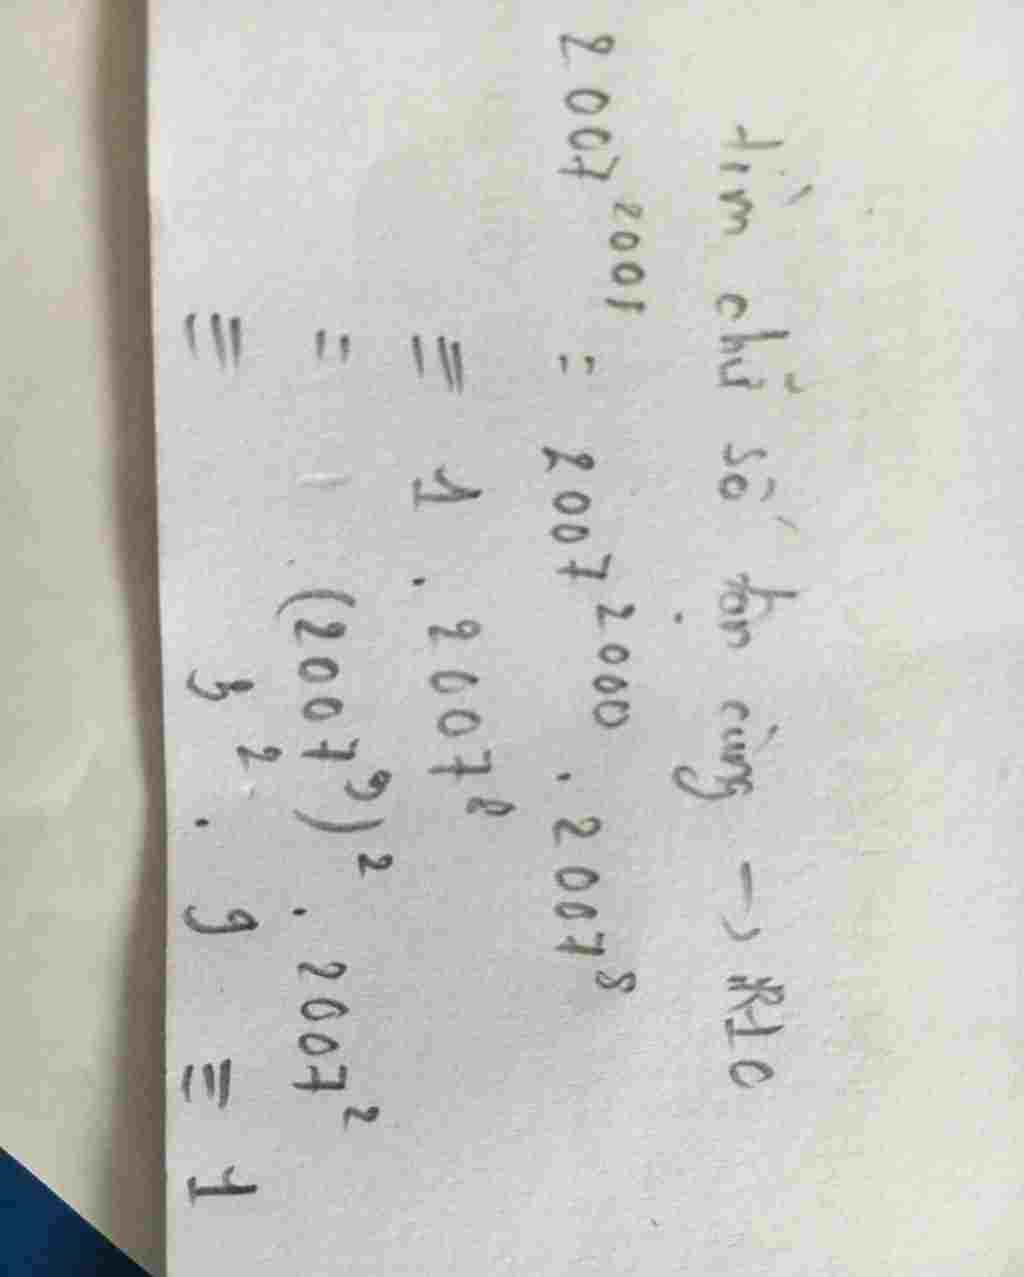 tìm chữ số tận cùng → R10
2007^2001 = 2007^2000 . 2007^8
≡ 1 . 2007^8
= (2007^3)^2 . 2007^2
≡ 3^2 . 9 ≡ 1